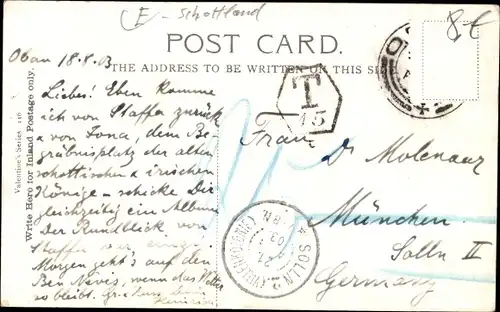 (E - Schottland
8€
POST CARD.
THE ADDRESS TO BE WRITTEN ON THIS SIDE
Oban 18.8.03
Liebes! Eben komme
ich von Staffa zurück
& von Iona, dem Be-
gräbnisplatz der alten
schottischen & irischen
Könige - schicke Dir
gleichzeitig ein Album
Der Rundblick von
Staffa war
Morgen geht's auf den
Ben Neves, wenn das Wetter
so bleibt.
Valentine's Series
Write Here for Inland Postage only.
T
15
Frau
Dr Molenaar
München
Solln II
Germany
SOLLN 2